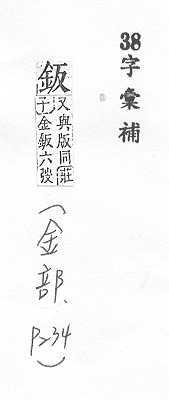 38字彙補
鈑
又與版同莊
子金鈑六弢
(金部、
P234)